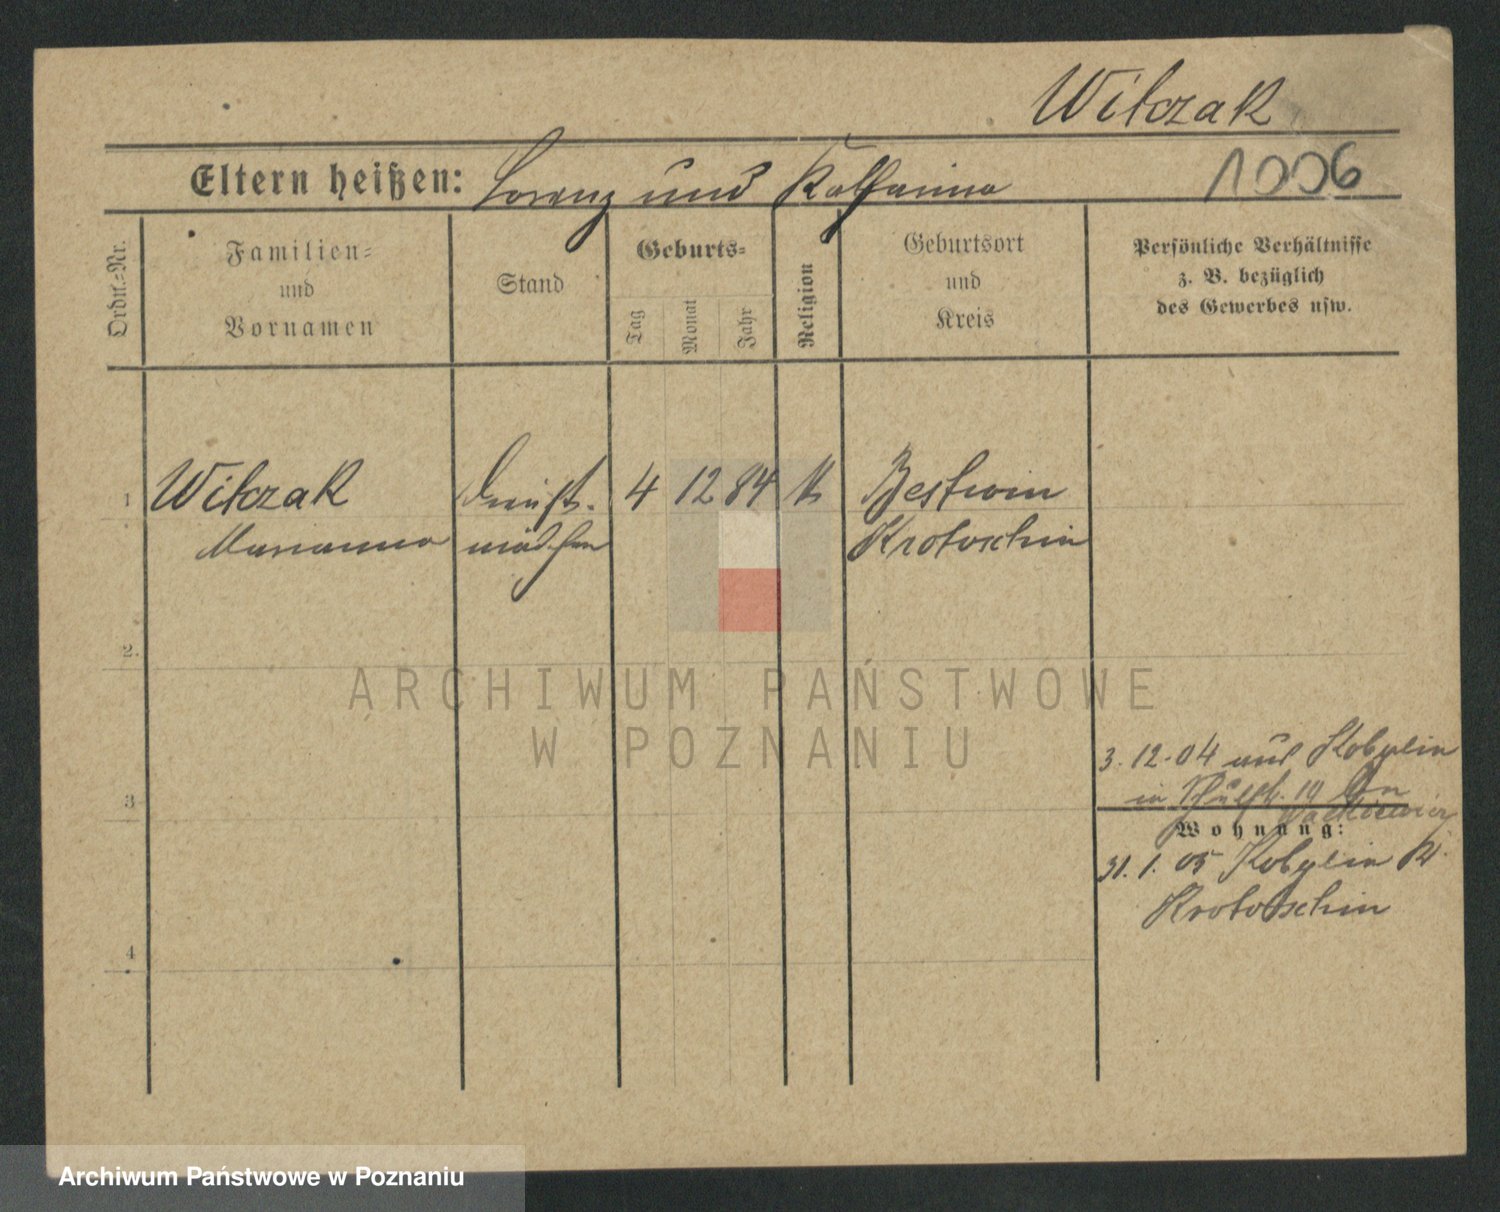 Wilczak
1006
Eltern heißen: Lorenz und Katharina
Ordn.-Nr.
Familien-
und
Vornamen
Stand
Geburts-
Tag
Monat
Jahr
Religion
Geburtsort
und
Kreis
Persönliche Verhältnisse
z. B. bezüglich
des Gewerbes usw.
1 Wilczak Dienst- 4 12 84 k Bestwin
Marianna mädchen Krotoschin
2.
3
4
ARCHIWUM PAŃSTWOWE
W POZNANIU
3.12.04 aus Kobylin
in 19
Wohnung:
31.1.05 Kobylin Kr.
Krotoschin
Archiwum Państwowe w Poznaniu